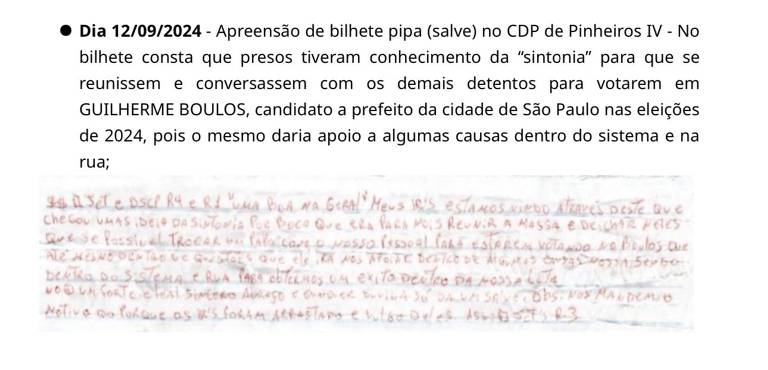 ● Dia 12/09/2024 - Apreensão de bilhete pipa (salve) no CDP de Pinheiros IV - No
bilhete consta que presos tiveram conhecimento da “sintonia” para que se
reunissem e conversassem com os demais detentos para votarem em
GUILHERME BOULOS, candidato a prefeito da cidade de São Paulo nas eleições
de 2024, pois o mesmo daria apoio a algumas causas dentro do sistema e na
rua;
SET E DSCP R4 E R1 "UMA BOA NA GERAL" MEUS IR'S ESTAMOS VINDO ATRAVÉS DESTE QUE
CHEGOU UMAS IDEIA DA SINTONIA POR BOCA QUE ERA PARA NOIS REUNIR A MASSA E DEICHAR
QUE SE POSSIVEL TROCAR UM PAPO COM O NOSSO PESSOAL PARA ESTAREM VOTANDO NO BOULOS QUE
ATÉ MESMO DENTRO DE QUESTÕES QUE ELE IRA NOS APOIAR DENTRO DE ALGUMAS NOSSA SENDO
DENTRO DO SISTEMA E RUA PARA OBTERMOS UM EXITO DENTRO DA NOSSA LUTA
UM FORTE E LEAL SINCERO ABRAÇO E QUALQUER DUVIDA SÓ DA UM SALVE. OBS: NOS MANDEM O
MOTIVO DO PORQUE OS IR'S FORAM ARRASTADO E VULGO DELES ASS: SET'S R-3